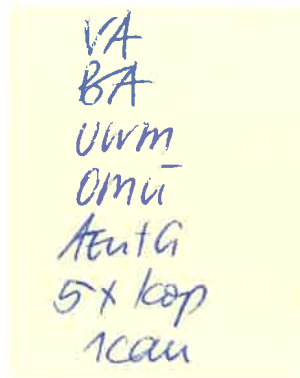 VA
BA
UWM
OMÜ
AEntG
5x kop
1can